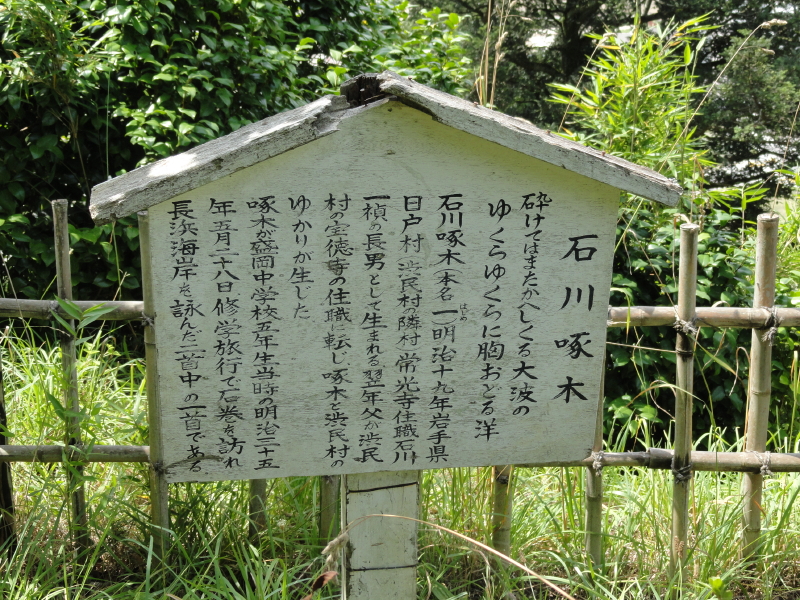 石川啄木
砕けてはまたかへしくる大波の
ゆくらゆくらに胸おどる洋
石川啄木(本名 一明治十九年岩手県
はじめ
日戸村(渋民村の隣村)常光寺住職石川
一禎の長男として生まれる翌一年父が渋民
村の宝徳寺の住職に転じ啄木と渋民村の
ゆかりが生じた
啄木が盛岡中学校五年生当時の明治三十五
年五月二十八日修学旅行で石巻を訪れ
長浜海岸を詠んだ二首中の一首である